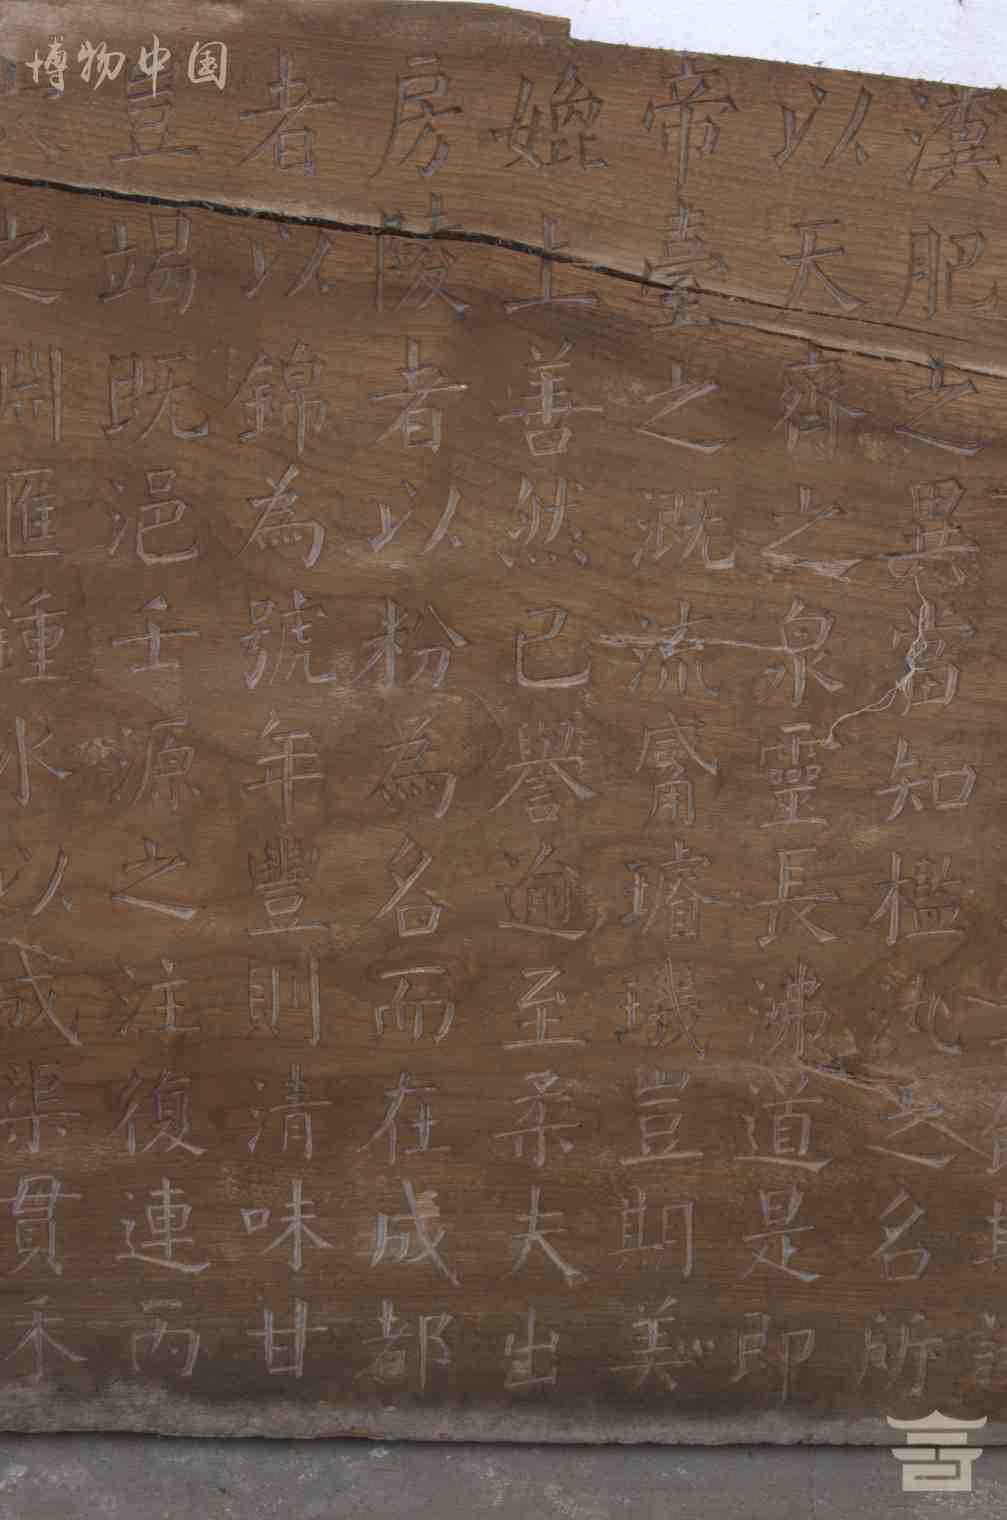 漢肥之異當知檻汍之名所
以天齊之泉靈長沸道是即
帝臺之溉流膚璿璣豈期美
媲上善然已譽邇至柔夫出
房陵者以粉為名而在成都
者以錦為號年豐則清味甘
豈竭既浥壬源之注復連丙
之淵匯鍾水以成渠貫禾
博物中国